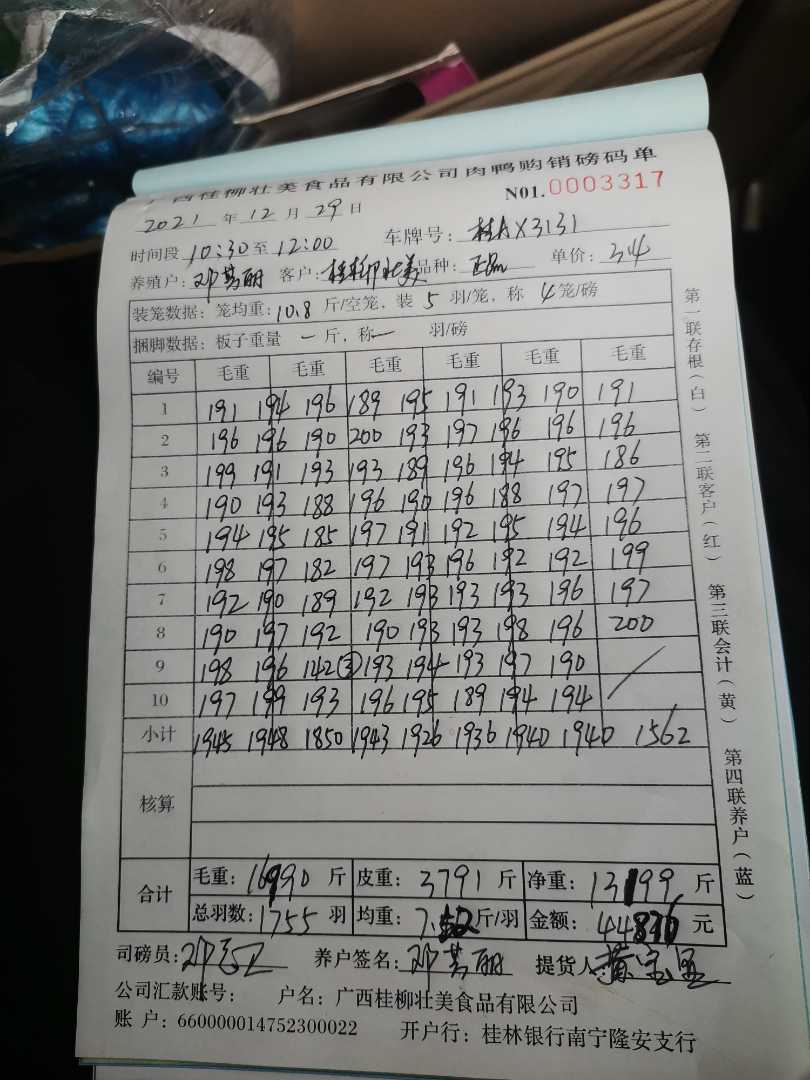 广西桂柳壮美食品有限公司肉鸭购销磅码单
N01.0003317
2021 年 12 月 29 日
时间段 10:30 至 12:00 车牌号: 桂AX3131
养殖户: 邓萬丽 客户: 桂柳壮美 品种: 单价: 3.4
装笼数据: 笼均重: 10.8 斤/空笼, 装 5 羽/笼, 称 4 笼/磅
捆脚数据: 板子重量 一 斤, 称 一 羽/磅
编号 毛重 毛重 毛重 毛重 毛重 毛重
1 191 194 196 189 195 191 193 190 191
2 196 196 190 200 193 197 196 196 196
3 199 191 193 193 189 196 194 195 186
4 190 193 188 196 190 196 188 197 197
5 194 195 185 197 191 192 195 194 196
6 198 197 182 197 193 196 192 192 199
7 192 190 189 192 193 193 193 196 197
8 190 197 192 190 193 193 198 196 200
9 198 196 142(3) 193 194 193 197 190 /
10 197 199 193 196 195 189 194 194 /
小计 1945 1948 1850 1943 1926 1936 1940 1940 1562
核算
合计 毛重: 16990 斤 皮重: 3791 斤 净重: 13199 斤
总羽数: 1755 羽 均重: 7.52 斤/羽 金额: 44876 元
司磅员: 养户签名: 提货人:
公司汇款账号: 户名: 广西桂柳壮美食品有限公司
账 户: 660000014752300022 开户行: 桂林银行南宁隆安支行
第一联存根(白) 第二联客户(红) 第三联会计(黄) 第四联养户(蓝)